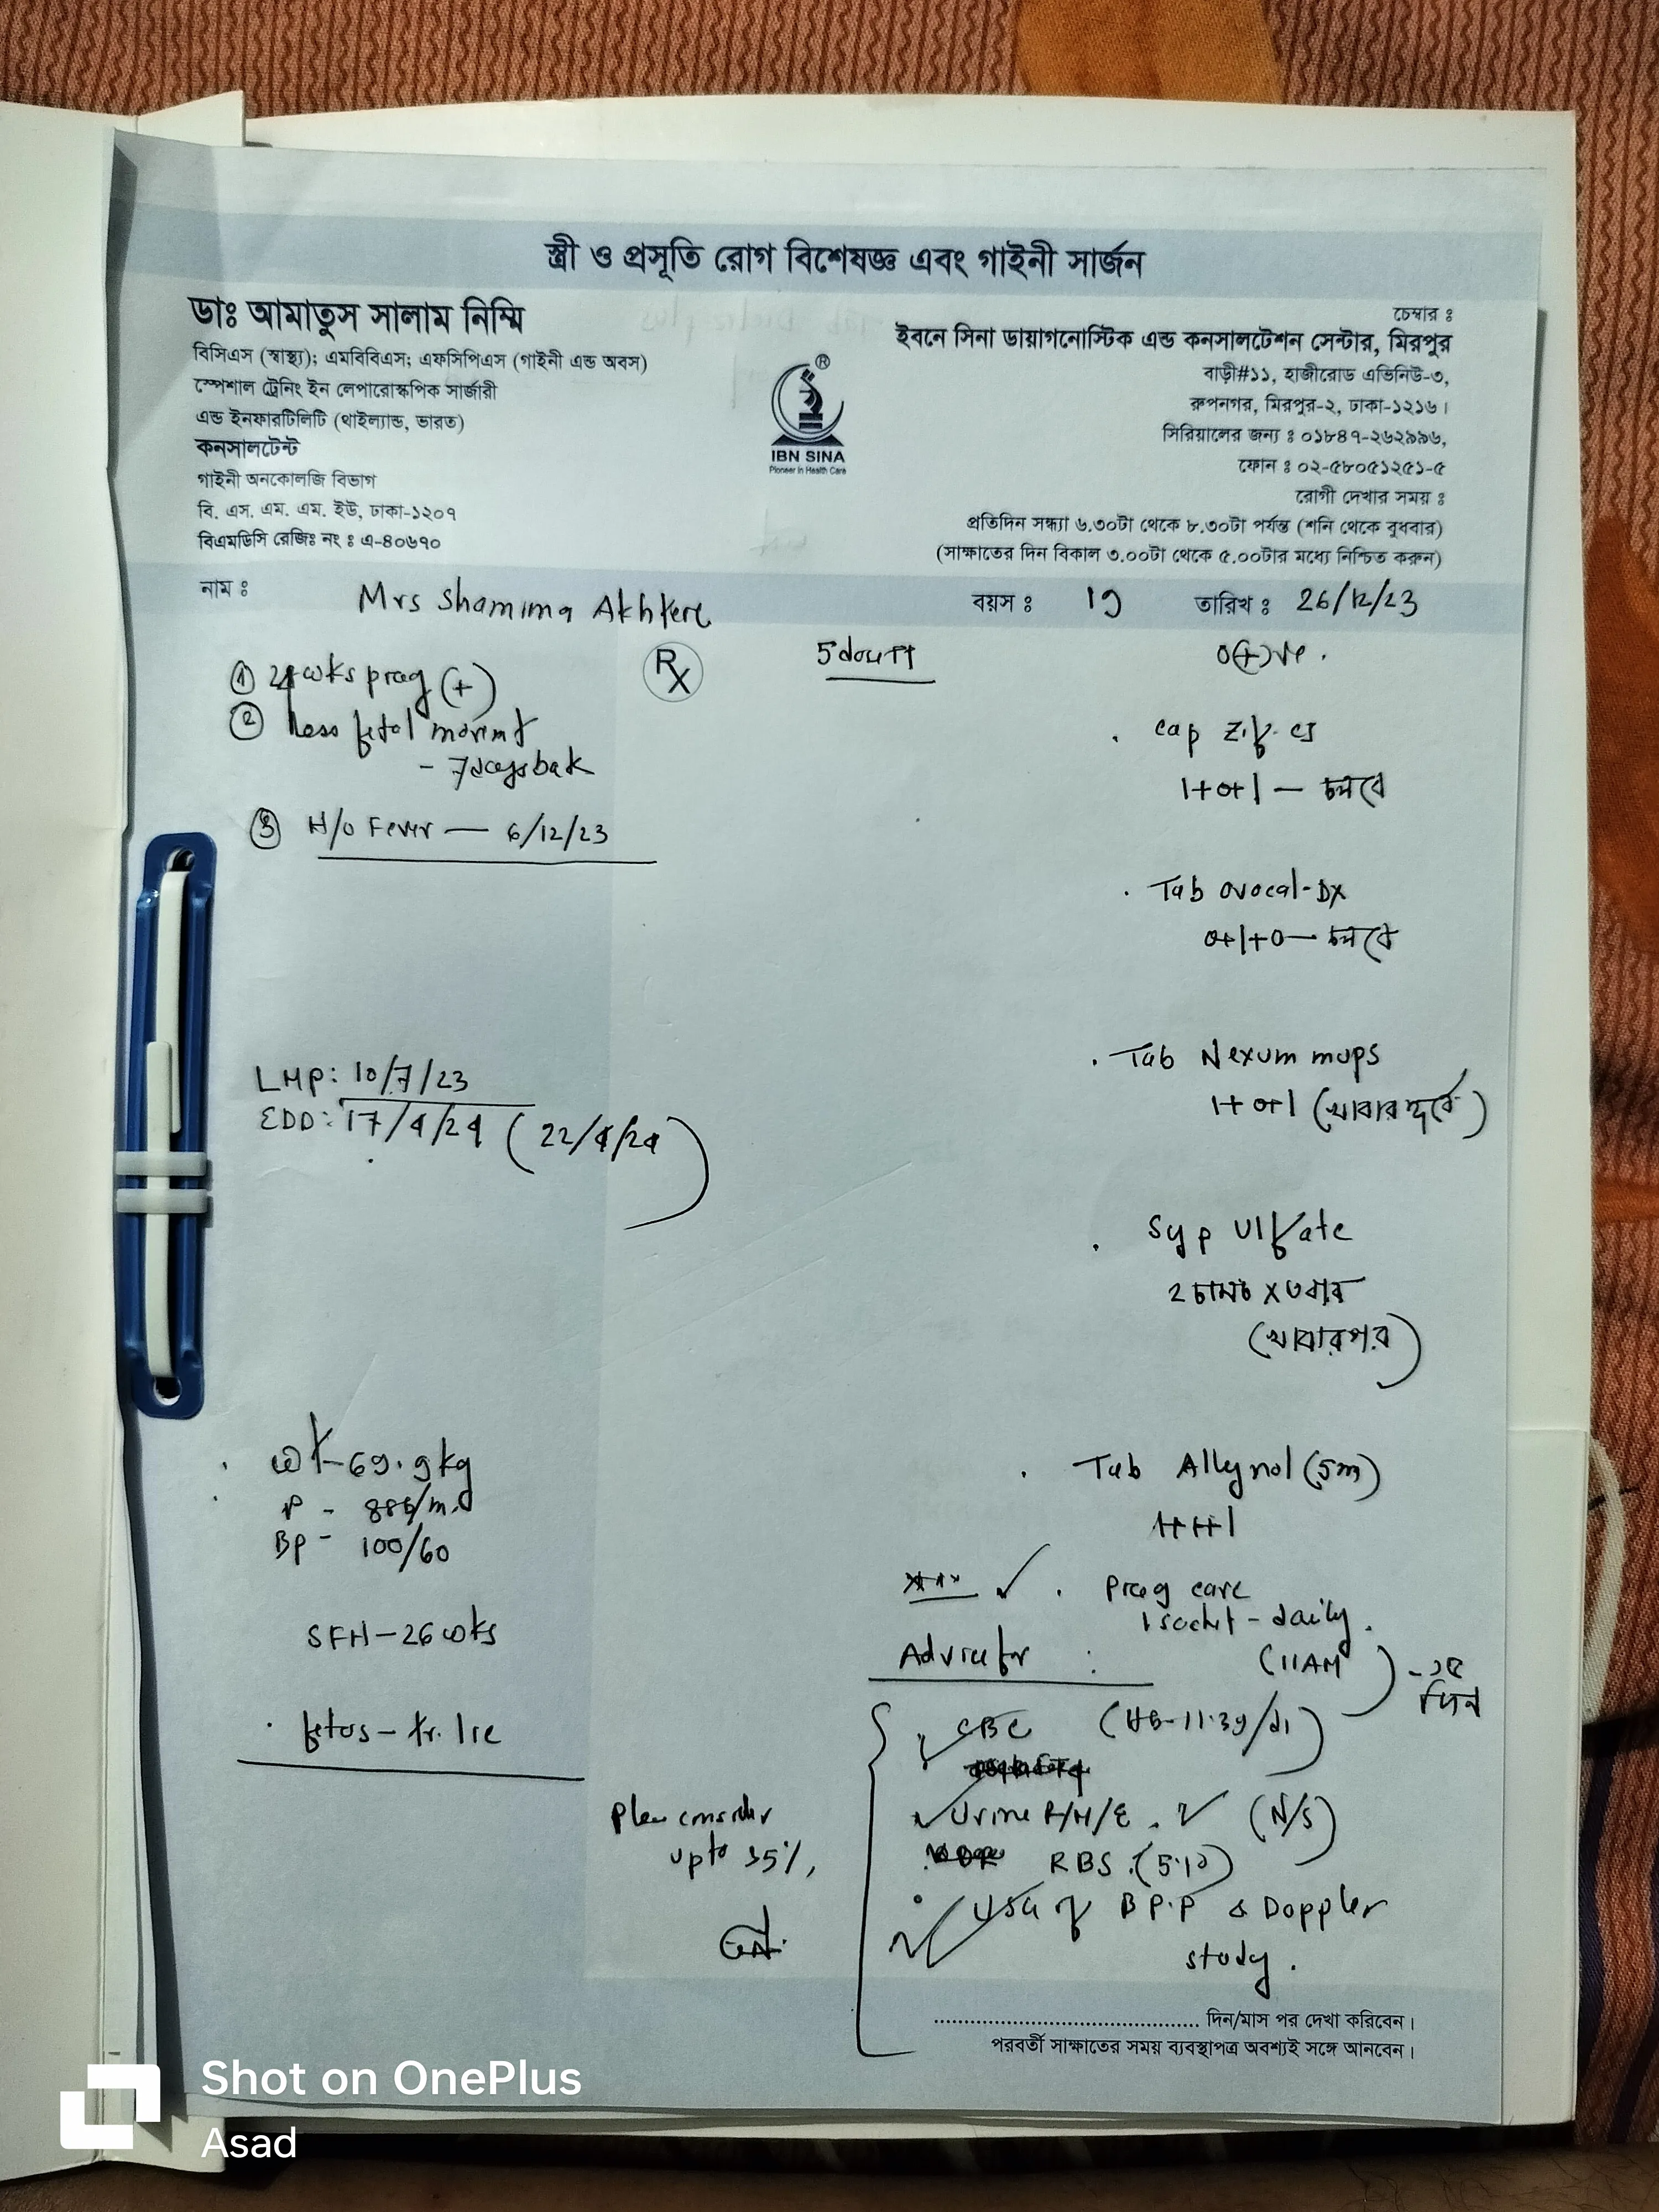 স্ত্রী ও প্রসূতি রোগ বিশেষজ্ঞ এবং গাইনী সার্জন
ডাঃ আমাতুস সালাম নিম্মি
বিসিএস (স্বাস্থ্য); এমবিবিএস; এফসিপিএস (গাইনী এন্ড অবস)
স্পেশাল ট্রেনিং ইন লেপারোস্কপিক সার্জারী
এন্ড ইনফারটিলিটি (থাইল্যান্ড, ভারত)
কনসালটেন্ট
গাইনী অনকোলজি বিভাগ
বি. এস. এম. এম. ইউ, ঢাকা-১২০৭
বিএমডিসি রেজিঃ নং ঃ এ-৪০৬৭০
®
IBN SINA
Pioneer in Health Care
চেম্বার ঃ
ইবনে সিনা ডায়াগনোস্টিক এন্ড কনসালটেশন সেন্টার, মিরপুর
বাড়ী#১১, হাজীরোড এভিনিউ-৩,
রুপনগর, মিরপুর-২, ঢাকা-১২১৬।
সিরিয়ালের জন্য ঃ ০১৮৪৭-২৬২৯৯৬,
ফোন ঃ ০২-৫৮০৫১২৫১-৫
রোগী দেখার সময় ঃ
প্রতিদিন সন্ধ্যা ৬.৩০টা থেকে ৮.৩০টা পর্যন্ত (শনি থেকে বুধবার)
(সাক্ষাতের দিন বিকাল ৩.০০টা থেকে ৫.০০টার মধ্যে নিশ্চিত করুন)
নাম ঃ Mrs Shamima Akhter বয়স ঃ 19 তারিখ ঃ 26/12/23
① 24 wks preg (+)
② Less fetal movemt
- 7days bak
③ H/o Fever — 6/12/23
LMP: 10/7/23
EDD: 17/4/24 (22/4/24)
wt - 69.9kg
P - 88b/m
BP - 100/60
SFH - 26 wks
. fetus - tr. lie
Rx
O(+)ve.
. Cap Zif-CI
1+0+1 — চলবে
. Tab Ovocal-DX
0+1+0 — চলবে
. Tab Nexum mups
1+0+1 (খাবার পূর্বে)
. Syp Ulfate
2 চামচ x ৩ বার
(খাবার পর)
. Tab (5m)
1+1+1
. Preg care
1 sachet - daily.
(11AM) - ১৫ দিন
Advice for :
CBC (HB-11.3g/dl)
Urine R/M/E. (N/S)
RBS.
USG of B.P.P & Doppler
study.
consider
upto 35%,
দিন/মাস পর দেখা করিবেন।
পরবর্তী সাক্ষাতের সময় ব্যবস্থাপত্র অবশ্যই সঙ্গে আনবেন।
Shot on OnePlus
Asad